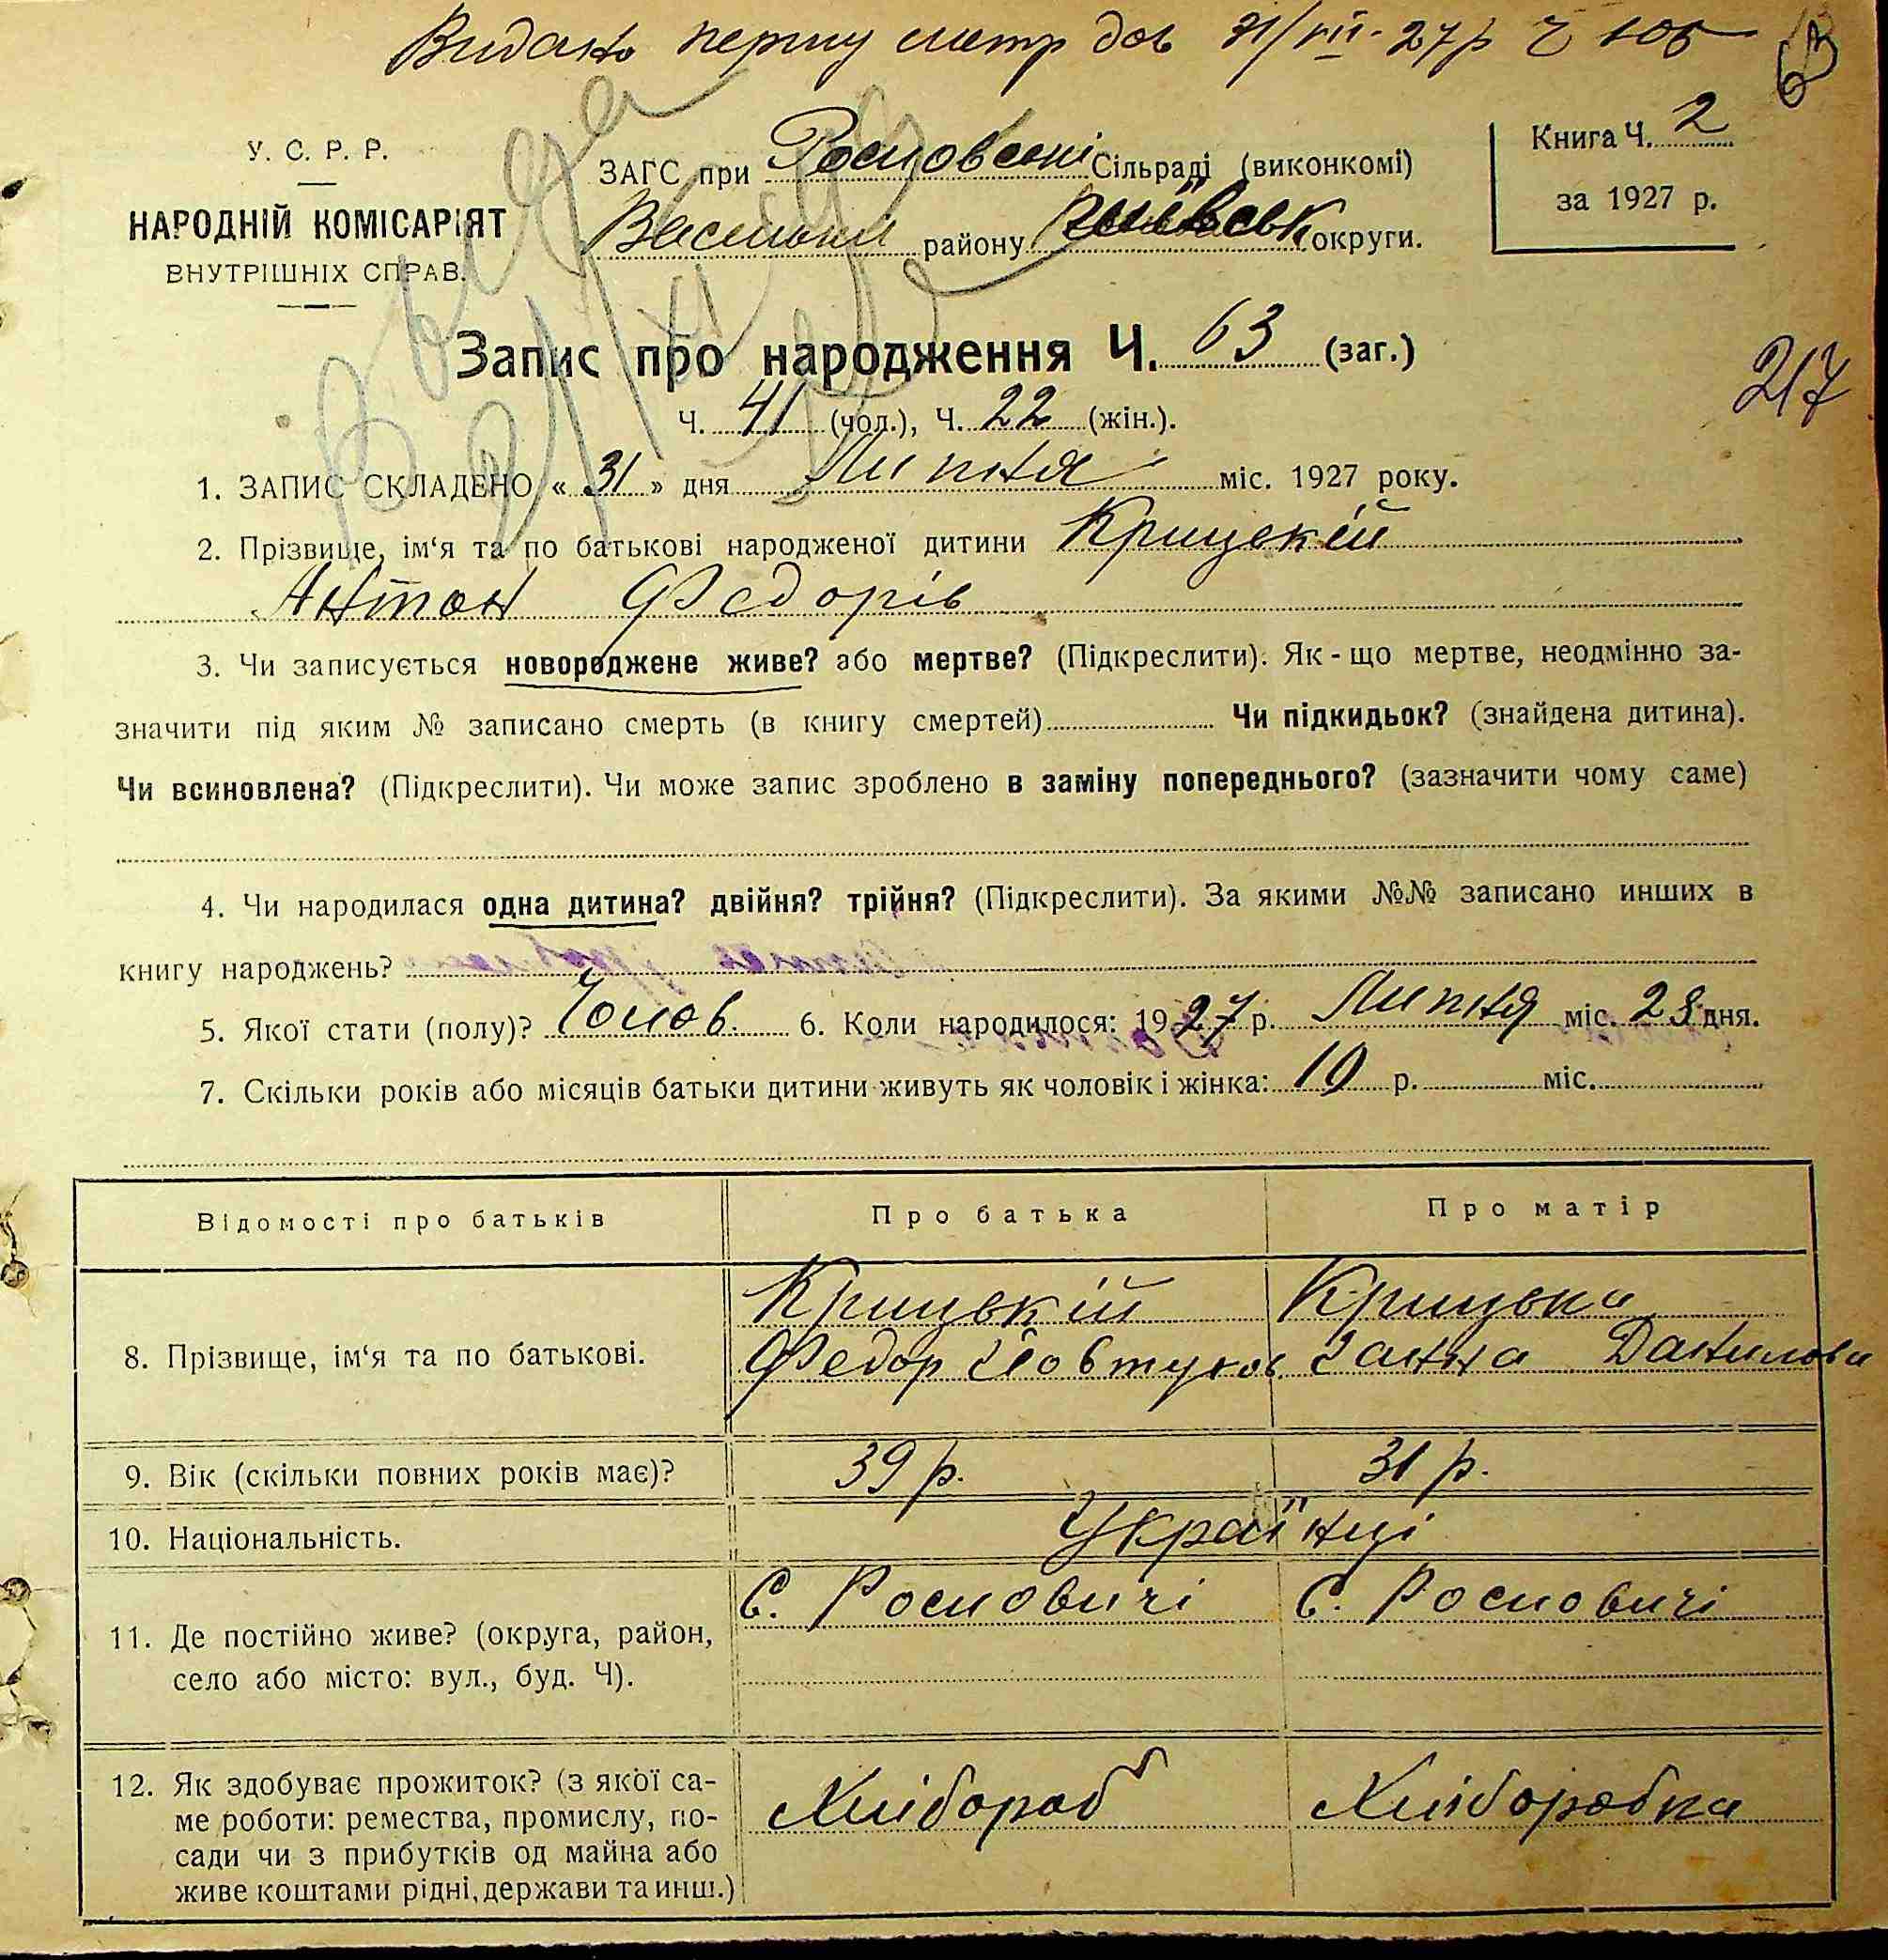 Видано першу метр дов 31/VII-27р Ч 105
63
У. С. Р. Р.
НАРОДНІЙ КОМІСАРІЯТ
ВНУТРІШНІХ СПРАВ.
ЗАГС при Росновській Сільраді (виконкомі)
Васильк району Київськ округи.
Книга Ч. 2
за 1927 р.
Запис про народження Ч. 63 (заг.)
217
Ч. 41 (чол.), Ч. 22 (жін.).
1. ЗАПИС СКЛАДЕНО « 31 » дня Липня міс. 1927 року.
2. Прізвище, ім‘я та по батькові народженої дитини Крицькій
Антон Федорів
3. Чи записується новороджене живе? або мертве? (Підкреслити). Як - що мертве, неодмінно за-
значити під яким № записано смерть (в книгу смертей) Чи підкидьок? (знайдена дитина).
Чи всиновлена? (Підкреслити). Чи може запис зроблено в заміну попереднього? (зазначити чому саме)
4. Чи народилася одна дитина? двійня? трійня? (Підкреслити). За якими №№ записано инших в
книгу народжень?
5. Якої стати (полу)? Чолов. 6. Коли народилося: 1927 р. Липня міс. 28 дня.
7. Скільки років або місяців батьки дитини живуть як чоловік і жінка: 10 р. міс.
Відомості про батьків Про батька Про матір
8. Прізвище, ім‘я та по батькові.
Крицькій Крицька
Федор Йовтухов Ганна Данилова
9. Вік (скільки повних років має)? 39 р. 31 р.
10. Національність. Українці
С. Росновичі С. Росновичі
11. Де постійно живе? (округа, район,
село або місто: вул., буд. Ч).
12. Як здобуває прожиток? (з якої са-
ме роботи: ремества, промислу, по-
сади чи з прибутків од майна або
живе коштами рідні, держави та инш.)
Хлібороб Хліборобка